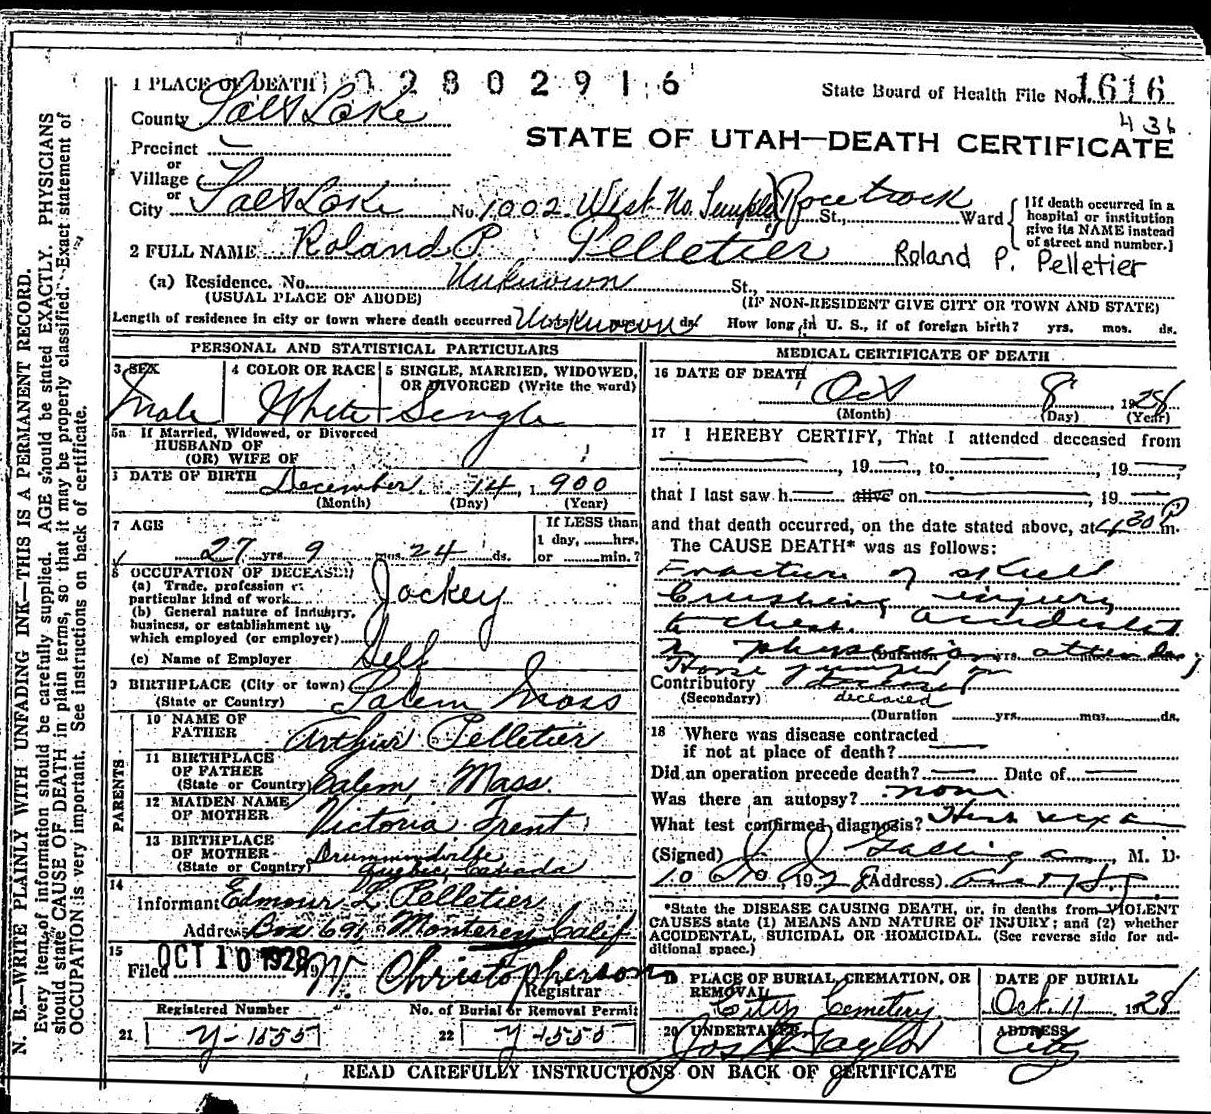 N. B.—WRITE PLAINLY WITH UNFADING INK—THIS IS A PERMANENT RECORD.
Every item of information should be carefully supplied. AGE should be stated EXACTLY. PHYSICIANS
should state CAUSE OF DEATH in plain terms, so that it may be properly classified. Exact statement of
OCCUPATION is very important. See instructions on back of certificate.
1 PLACE OF DEATH 02802916
State Board of Health File No. 1616
436
County Salt Lake
STATE OF UTAH—DEATH CERTIFICATE
Precinct
or
Village
or
City Salt Lake No. 1002 West No. Temple Racetrack St., Ward
[If death occurred in a
hospital or institution
give its NAME instead
of street and number.]
2 FULL NAME Roland P. Pelletier Roland P. Pelletier
(a) Residence. No. Unknown St.,
(USUAL PLACE OF ABODE) (IF NON-RESIDENT GIVE CITY OR TOWN AND STATE)
Length of residence in city or town where death occurred Unknown ds. How long in U. S., if of foreign birth? yrs. mos. ds.
PERSONAL AND STATISTICAL PARTICULARS
3 SEX Male
4 COLOR OR RACE White
5 SINGLE, MARRIED, WIDOWED,
OR DIVORCED (Write the word)
Single
5a If Married, Widowed, or Divorced
HUSBAND OF
(OR) WIFE OF
DATE OF BIRTH December 14, 1900
(Month) (Day) (Year)
7 AGE
27 yrs. 9 mos. 24 ds.
If LESS than
1 day, hrs.
or min.?
8 OCCUPATION OF DECEASED
(a) Trade, profession or
particular kind of work Jockey
(b) General nature of industry,
business, or establishment in
which employed (or employer)
(c) Name of Employer Self
9 BIRTHPLACE (City or town)
(State or Country) Salem Mass
PARENTS
10 NAME OF
FATHER Arthur Pelletier
11 BIRTHPLACE
OF FATHER
(State or Country) Salem, Mass.
12 MAIDEN NAME
OF MOTHER Victoria Trent
13 BIRTHPLACE
OF MOTHER
(State or Country) Drummondville
Quebec, Canada
14
Informant Edmour L. Pelletier
Address Box 691, Monterey Calif
15
Filed OCT 10 1928 W. Christopherson
Registrar
Registered Number No. of Burial or Removal Permit
21 Y-1555 22 Y-1555
MEDICAL CERTIFICATE OF DEATH
16 DATE OF DEATH
Oct 8, 1928
(Month) (Day) (Year)
17 I HEREBY CERTIFY, That I attended deceased from
, 19 , to , 19
that I last saw h alive on , 19
and that death occurred, on the date stated above, at 4:30 P m.
The CAUSE DEATH* was as follows:
Fracture of skull
Crushing injury
to chest. Accidental
No physician attending
(Duration yrs.
Horse jumped on
Contributory
(Secondary) deceased
(Duration yrs. mos. ds.
18 Where was disease contracted
if not at place of death?
Did an operation precede death? Date of
Was there an autopsy? none
What test confirmed diagnosis?
(Signed) J. J. , M. D.
10/10, 1928 (Address)
*State the DISEASE CAUSING DEATH, or, in deaths from VIOLENT
CAUSES state (1) MEANS AND NATURE OF INJURY; and (2) whether
ACCIDENTAL, SUICIDAL OR HOMICIDAL. (See reverse side for ad-
ditional space.)
19 PLACE OF BURIAL, CREMATION, OR
REMOVAL
City Cemetery
DATE OF BURIAL
Oct. 11 1928
20 UNDERTAKER
Jos Wm Taylor
ADDRESS
City
READ CAREFULLY INSTRUCTIONS ON BACK OF CERTIFICATE